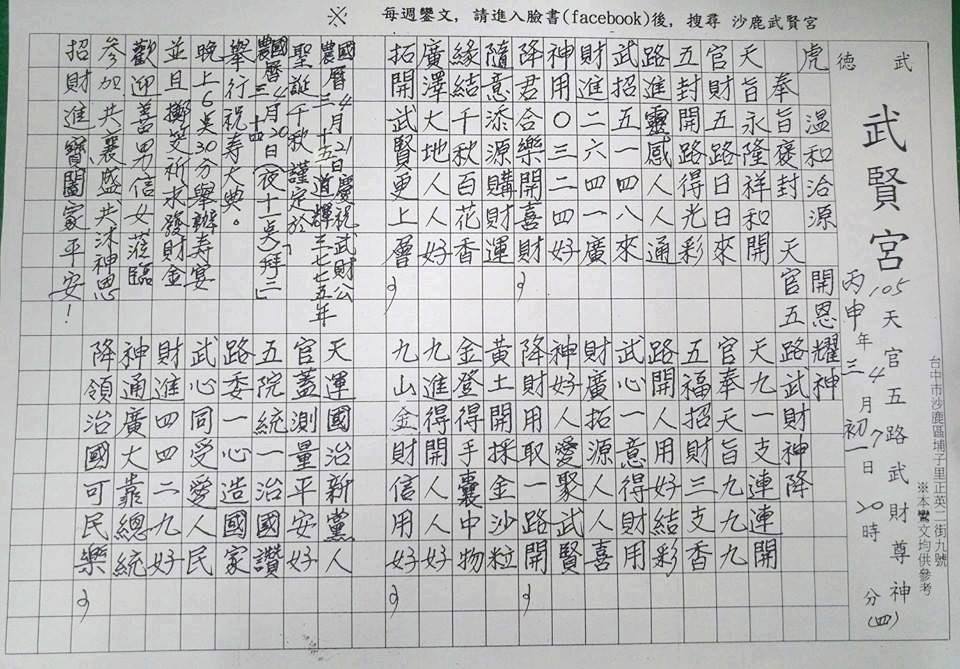 ※ 每週鑾文，請進入臉書(facebook)後，搜尋 沙鹿武賢宮
台中市沙鹿區埔子里正英二街九號
※本鸞文均供參考
武德
武賢宮
105天官五路武財尊神
丙申年三月初一日20時 分(四)
4 7
虎 溫和治源 開恩耀神
奉旨褒封 天官五路武財神降
天旨永隆祥和開
官財五路日日來
五封開路得光彩
路進靈感人人通
武招五一四八來
財進二六四一廣
神用0三二四好
降君合樂開喜財
隨意添源購財運
緣結千秋百花香
廣澤大地人人好
拓開武賢更上層
天九一支連連開
官奉天旨九九九
五福招財三支香
路開人用好結彩
武心一意得財用
財廣拓源人人喜
神好人愛聚武賢
降財用取一路開
黃土開採金沙粒
金登得手囊中物
九進得開人人好
九山金財信用好
國曆4月21日慶祝武財公
農 三 十五 道輝三七七五年
聖誕千秋謹定於
國曆4月20日(夜十一點拜三)
農 三 十四
舉行祝寿大典。
晚上6點30分舉辦寿宴
並且擲筊祈求發財金
歡迎善男信女蒞臨
參加共襄盛、共沐神恩
招財進寶、闔家平安！
天運國治新黨人
官蓋測量平安好
五院統一治國讚
路委一心造國家
武心同受愛人民
財進四四二九好
神通廣大靠總統
降領治國可民樂